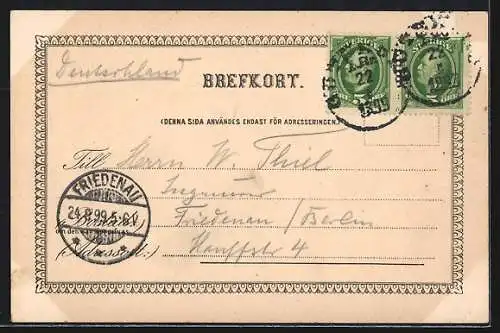 Deutschland
BREFKORT.
SVERIGE
5 ÖRE
22
1899
(DENNA SIDA ANVÄNDES ENDAST FÖR ADRESSERINGEN.)
Till Herrn W. Thiel
Ingenieur
Friedenau / Berlin
4
FRIEDENAU
24.8.99.5-6N.
(Adressort:)